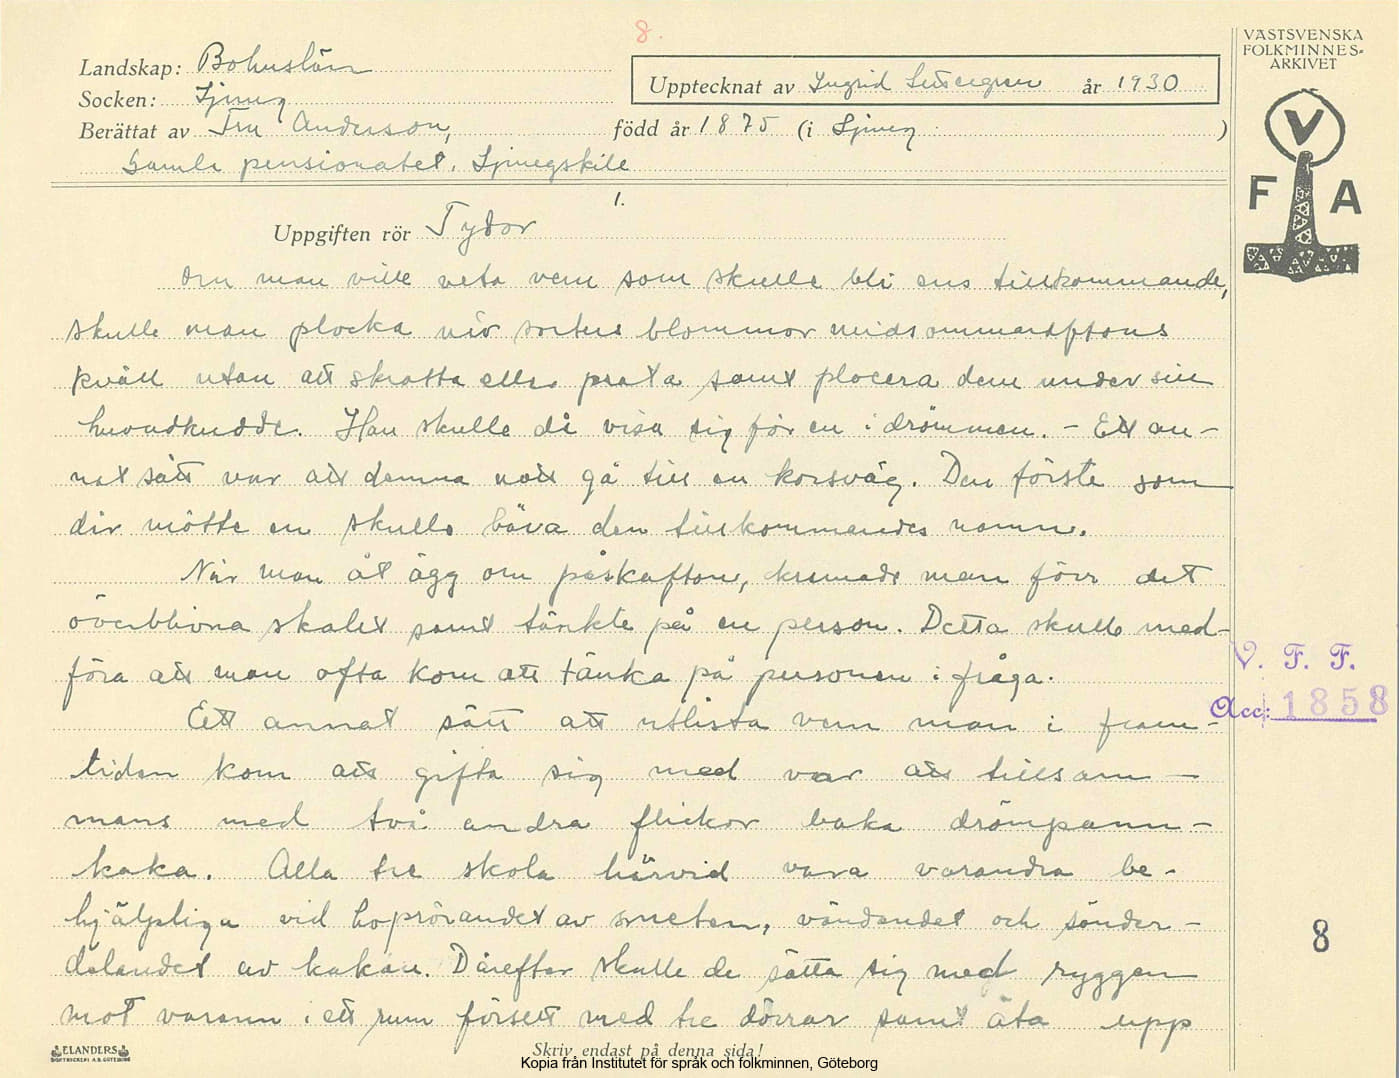 8.
VÄSTSVENSKA
FOLKMINNES-
ARKIVET
Landskap: Bohuslän
Socken: Ljung
Upptecknat av Ingrid år 1930
Berättat av Fru Andersson, född år 1875 (i Ljung )
Gamla pensionatet, Ljungskile
V
F A
1.
Uppgiften rör Tydor
Om man ville veta vem som skulle bli ens tillkommande,
skulle man plocka nio sorters blommor midsommaraftons
kväll utan att skratta eller prata samt placera dem under sin
huvudkudde. Han skulle då visa sig för en i drömmen. - Ett an-
nat sätt var att denna natt gå till en korsväg. Den förste som
där mötte en skulle bära den tillkommandes namn.
När man åt ägg om påskafton, kramade man förr det
överblivna skalet samt tänkte på en person. Detta skulle med-
föra att man ofta kom att tänka på personen i fråga.
Ett annat sätt att utlista vem man i fram-
tiden kom att gifta sig med var att tillsam-
mans med två andra flickor baka drömpann-
kaka. Alla tre skola härvid vara varandra be-
hjälpliga vid hoprörandet av smeten, vändandet och sönder-
delandet av kakan. Därefter skulle de sätta sig med ryggen
mot varann i ett rum försett med tre dörrar samt äta upp
V. F. F.
Acc: 1858
8
ELANDERS
BOKTRYCKERI A.B. GÖTEBORG
Skriv endast på denna sida!
Kopia från Institutet för språk och folkminnen, Göteborg